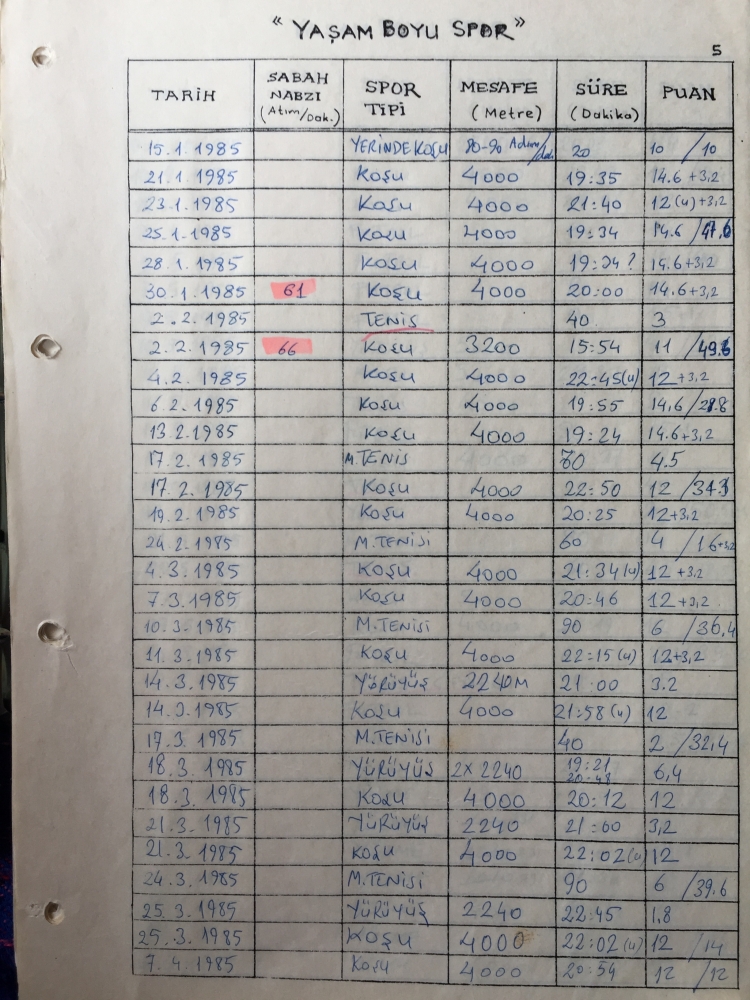 “ YAŞAM BOYU SPOR ”
5
TARİH SABAH NABZI (Atım/Dak.) SPOR TİPİ MESAFE (Metre) SÜRE (Dakika) PUAN
15.1.1985 YERİNDE KOŞU 80-90 Adım/dak. 20 10 /10
21.1.1985 KOŞU 4000 19:35 14.6+3,2
23.1.1985 KOŞU 4000 21:40 12(u)+3,2
25.1.1985 KOŞU 4000 19:34 14.6 /47.6
28.1.1985 KOŞU 4000 19:24? 14.6+3,2
30.1.1985 61 KOŞU 4000 20:00 14.6+3,2
2.2.1985 TENİS 40 3
2.2.1985 66 KOŞU 3200 15:54 11 /49.6
4.2.1985 KOŞU 4000 22:45(u) 12+3,2
6.2.1985 KOŞU 4000 19:55 14,6 /29.8
13.2.1985 KOŞU 4000 19:24 14.6+3,2
17.2.1985 M.TENİS 70 4.5
17.2.1985 KOŞU 4000 22:50 12 /34.3
19.2.1985 KOŞU 4000 20:25 12+3,2
24.2.1985 M.TENİSİ 60 4 /16+3,2
4.3.1985 KOŞU 4000 21:34(u) 12+3,2
7.3.1985 KOŞU 4000 20:46 12+3,2
10.3.1985 M.TENİSİ 90 6 /36,4
11.3.1985 KOŞU 4000 22:15(u) 12+3,2
14.3.1985 YÜRÜYÜŞ 2240M 21:00 3.2
14.3.1985 KOŞU 4000 21:58(u) 12
17.3.1985 M.TENİSİ 40 2 /32,4
18.3.1985 YÜRÜYÜŞ 2x2240 19:21 20:48 6,4
18.3.1985 KOŞU 4000 20:12 12
21.3.1985 YÜRÜYÜŞ 2240 21:00 3,2
21.3.1985 KOŞU 4000 22:02(u) 12
24.3.1985 M.TENİSİ 90 6 /39.6
25.3.1985 YÜRÜYÜŞ 2240 22:45 1,8
25.3.1985 KOŞU 4000 22:02(u) 12 /14
7.4.1985 KOŞU 4000 20:54 12 /12